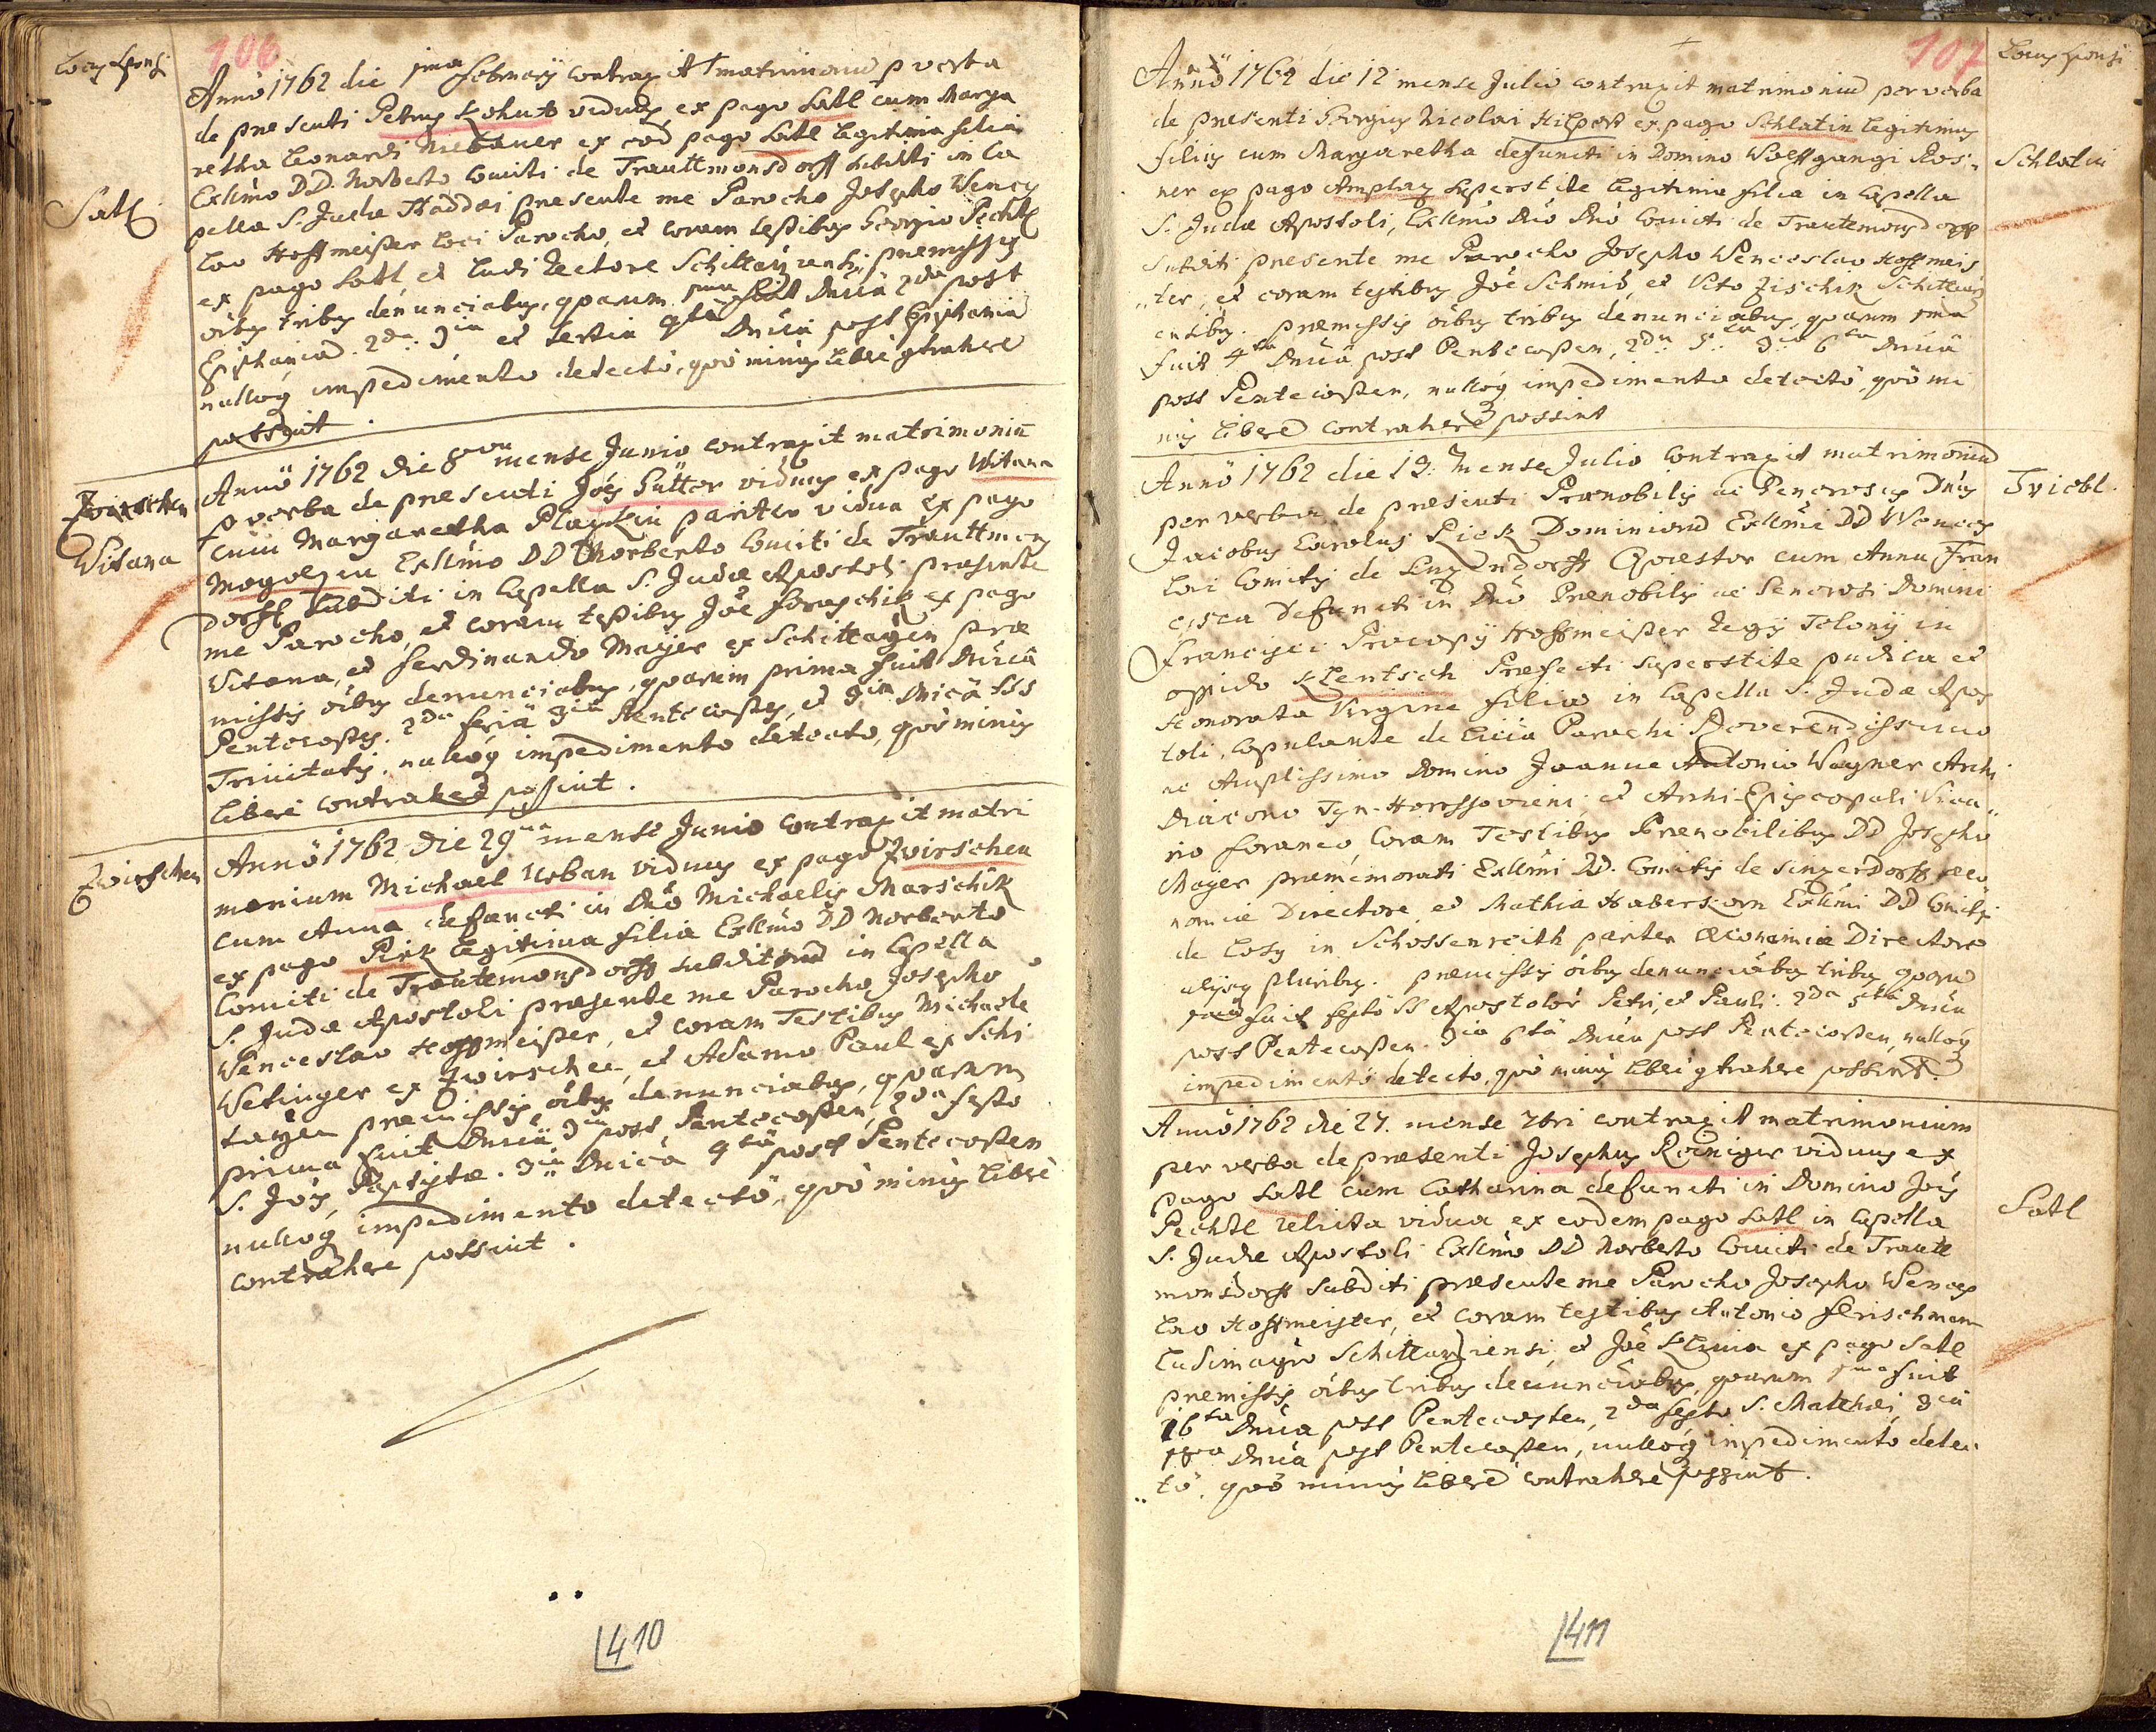 Locus Sponsi
106
Anno 1762 die 1ma Februarÿ contraxit matrimoniũ p verba
de præsenti Petrus Kohut viduus ex pago Satl cum Marga
retha Leonardi ex eod pago Satl legitima filia
Exllmo DD. Norberto Comiti de Trauttmonsdorff subditi in Ca
pella S. Judæ Thaddæi præsente me Parocho Josepho Wences
Satl
lao Hoffmeister loci Parocho, et coram testibus Georgio Pechtl
ex pago Satl, et Ludi Rectore Schittarzensi, præmissis
oibus tribus denunciabus, quarum 1ma fuit Dnica 2da post
Epiphaniã. 2da 3ia et tertia 4ta Dnica post Epiphaniã
nulloq impedimento detecto, quo minus libere ꝯtrahere
possint.
Zwirschen
Witana
Anno 1762 die 8va mense Junio contraxit matrimoniũ
p verba de præsenti Joes Sutter viduus ex pago Witana
cum Margaretha pariter vidua ex pago
Mogolzen Exllmo DD Norberto Comiti de Trauttmons
dorff subditi in Capella S. Judæ Apostoli præsente
me Parocho, et coram testibus Joe ex pago
Witana, et Ferdinando Mayer ex Schittarzen præ
missis oibus denunciabus, quarum prima fuit Dnica
Pentecostes. 2da feria 3ia Pentecostes, et 3ia Dnica SSS
Trinitatis, nulloq impedimento detecto, quo minus
libere contrahere possint.
Zwirschen
Anno 1762 die 29na mense Junio contraxit matri
monium Michael Urban viduus ex pago Zwirschen
cum Anna defuncti in Dno Michaelis Marschik
ex pago Pirk legitima filia Exllmo DD Norberto
Comiti de Trautemonsdorff subditorũ in Capella
S. Judæ Apostoli præsente me Parocho Josepho
Wenceslao Hoffmeister, et coram Testibus Michaele
Wetinger ex Zwirschen, et Adamo Paul ex Schi
tarzen præmissis oibus denunciabus, quarum
prima fuit Dnica 3ia post Pentecosten, 2da festo
S. Jois Baptistæ. 3ia Dnica 4ta post Pentecosten
nulloq impedimento detecto, quo minus libere
contrahere possint.
410
107
Locus Sponsi
Anno 1762 die 12 mense Julio contraxit matrimoniũ per verba
de præsenti Georgius Nicolai Hilpert ex pago Schlatin legitimus
filius cum Margaretha defuncti in Domino Wolffgangi Ros:
Schlatin
ner ex pago Amplaz superstite legitima filia in Capella
S. Judæ Apostoli, Exllmo Dno Dno Comiti de Trautemonsdorff
subditi præsente me Parocho Josepho Wenceslao Hoffmeis
ter, et coram testibus Joe Schmid, et Vito Zischik Schittarz
ensibus. præmissis oibus tribus denunciabus, quarum 1ma
fuit 4ta Dnica post Pentecosten, 2da 5ta 3ia 6ta Dnica
post Pentecosten, nulloq impedimento detecto, quo mi
nus libere contrahere possint
Anno 1762 die 19. mense Julio contraxit matrimoniũ
Triebl.
per verba de præsenti Prænobilis ac Generosus Dnus
Jacobus Carolus Piek Dominiorũ Exllmi DD Wences
lai Comitis de Sinzendorff Quæstor cum Anna Fran
cisca Defuncti in Dno Prænobilis ac Generosi Domini
Francisci Procopÿ Hoffmeister Regÿ Telonÿ in
oppido Klentsch Præfecti superstite pudica et
Honorata Virgine filia in Capella S. Judæ Apos
toli, Copulante de licia Parochi Reverendissimo
ac Amplissimo Domino Joanne Antonio Wagner Archi
Diacono Tyn-Horssoviensi et Archi-Episcopali Vica
rio foraneo, coram Testibus Prænobilibus DD Josepho
Mayer præmemorati Exllmi DD. Comitis de Sinzendorff oeco
nomiæ Directore, et Mathia Haberkorn Exllmi DD Comitis
de Losy in Schossenreith pariter oeconomiæ Directore
alÿsq pluribus. præmissis oibus denunciabus tribus quarũ
1ma fuit festo SS Apostolor Petri, et Pauli. 2da 5ta Dnica
post Pentecosten. 3ia 6ta Dnica post Pentecosten, nulloq
impedimento detecto, quo minus libere ꝯtrahere possint.
Anno 1762 die 27. mense 7bri contraxit matrimonium
per verba de præsenti Josephus Reiniger viduus ex
pago Satl cum Catharina defuncti in Domino Jois
Satl
Pechtl relicta vidua ex eodem pago Satl in Capella
S. Judæ Apostoli Exllmo DD Norberto Comiti de Trautt
monsdorff subditi præsente me Parocho Josepho Wences
lao Hoffmeister, et coram testibus Antonio Flrischman
Ludimagro Schittarziensi, et Joe ex pago Satl
præmissis oibus tribus denunciabus, quarum 1ma fuit
16ta Dnica post Pentecosten, 2da festo S. Mathæi, 3ia
17ma Dnica post Pentecosten, nulloq impedimento detec
to, quo minus libere contrahere possint.
411